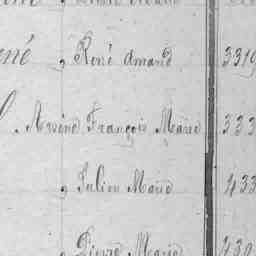 né , René Amand 3319
Arsène François Marie 333
, Julien Marie 433
, Pierre Marie 439